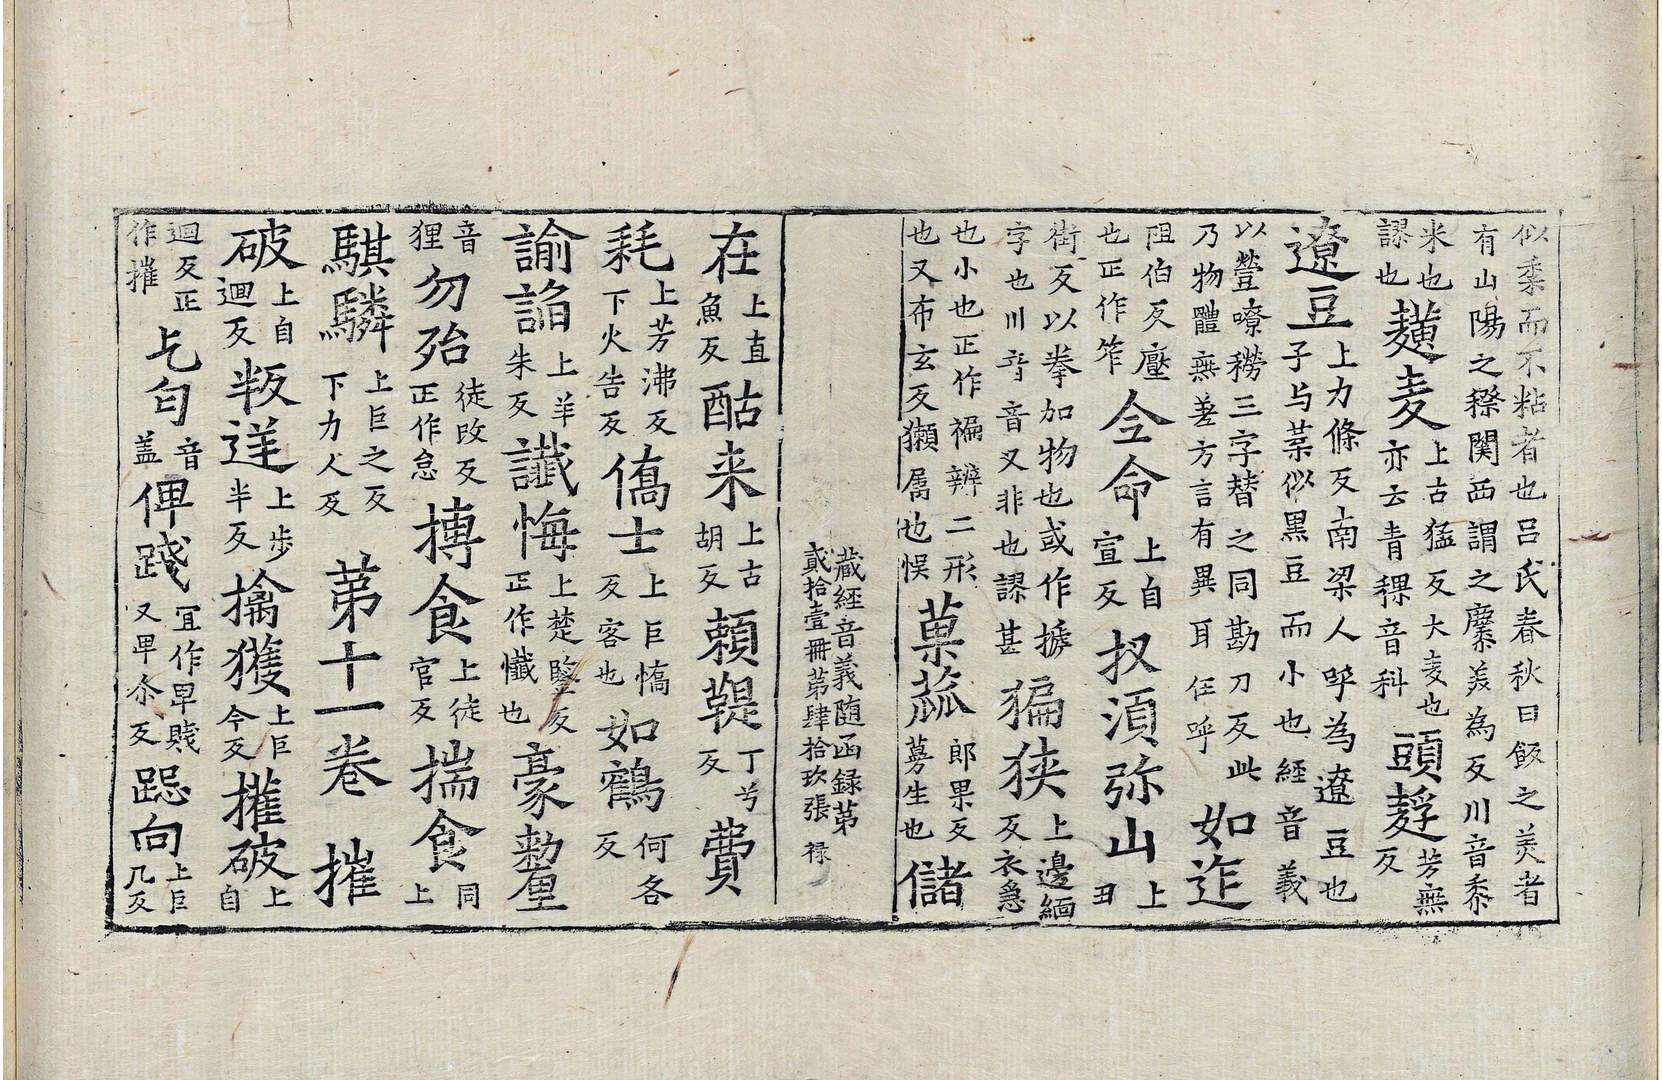 似黍而不粘者也吕氏春秋曰飯之美者
有山陽之穄関西謂之䵚羙為反川音黍
来也謬也䵃麦上古猛反大麦也亦云青稞音科頭䴸芳無反
遼豆上力條反南梁人呼為遼豆也子与菜似黒豆而小也經音義
以䝁嘹䅡三字替之同勘刀反此乃物體無差方言有異耳任呼如迮
阻伯反壓也正作笮仝命上自宣反扠湏弥山上丑
街反以拳加物也或作摣字也川音音叉非也謬甚猵狹上邊緬反衣急
也小也正作褊辨二形也又布玄反獺属也悮菓蓏郎果反蒭生也儲
藏經音義随函録第
貳拾壹冊第肆拾玖張 禄
在上直魚反酤来上古胡反頼鞮丁兮反費
耗上芳沸反下火告反僑士上巨憍反客也如鶴何各反
諭諂上羊朱反讖悔上楚鑒反正作懺也豪𣯛
音狸勿殆徒改反正作怠摶食上徒官反揣食同上
騏驎上巨之反下力人反 苐十一卷 摧
破上自迴反叛逆上步半反擒獲上巨今反摧破上自
迴反正作摧乞匄音盖俾踐冝作卑賤又卑尒反跽向上巨几反